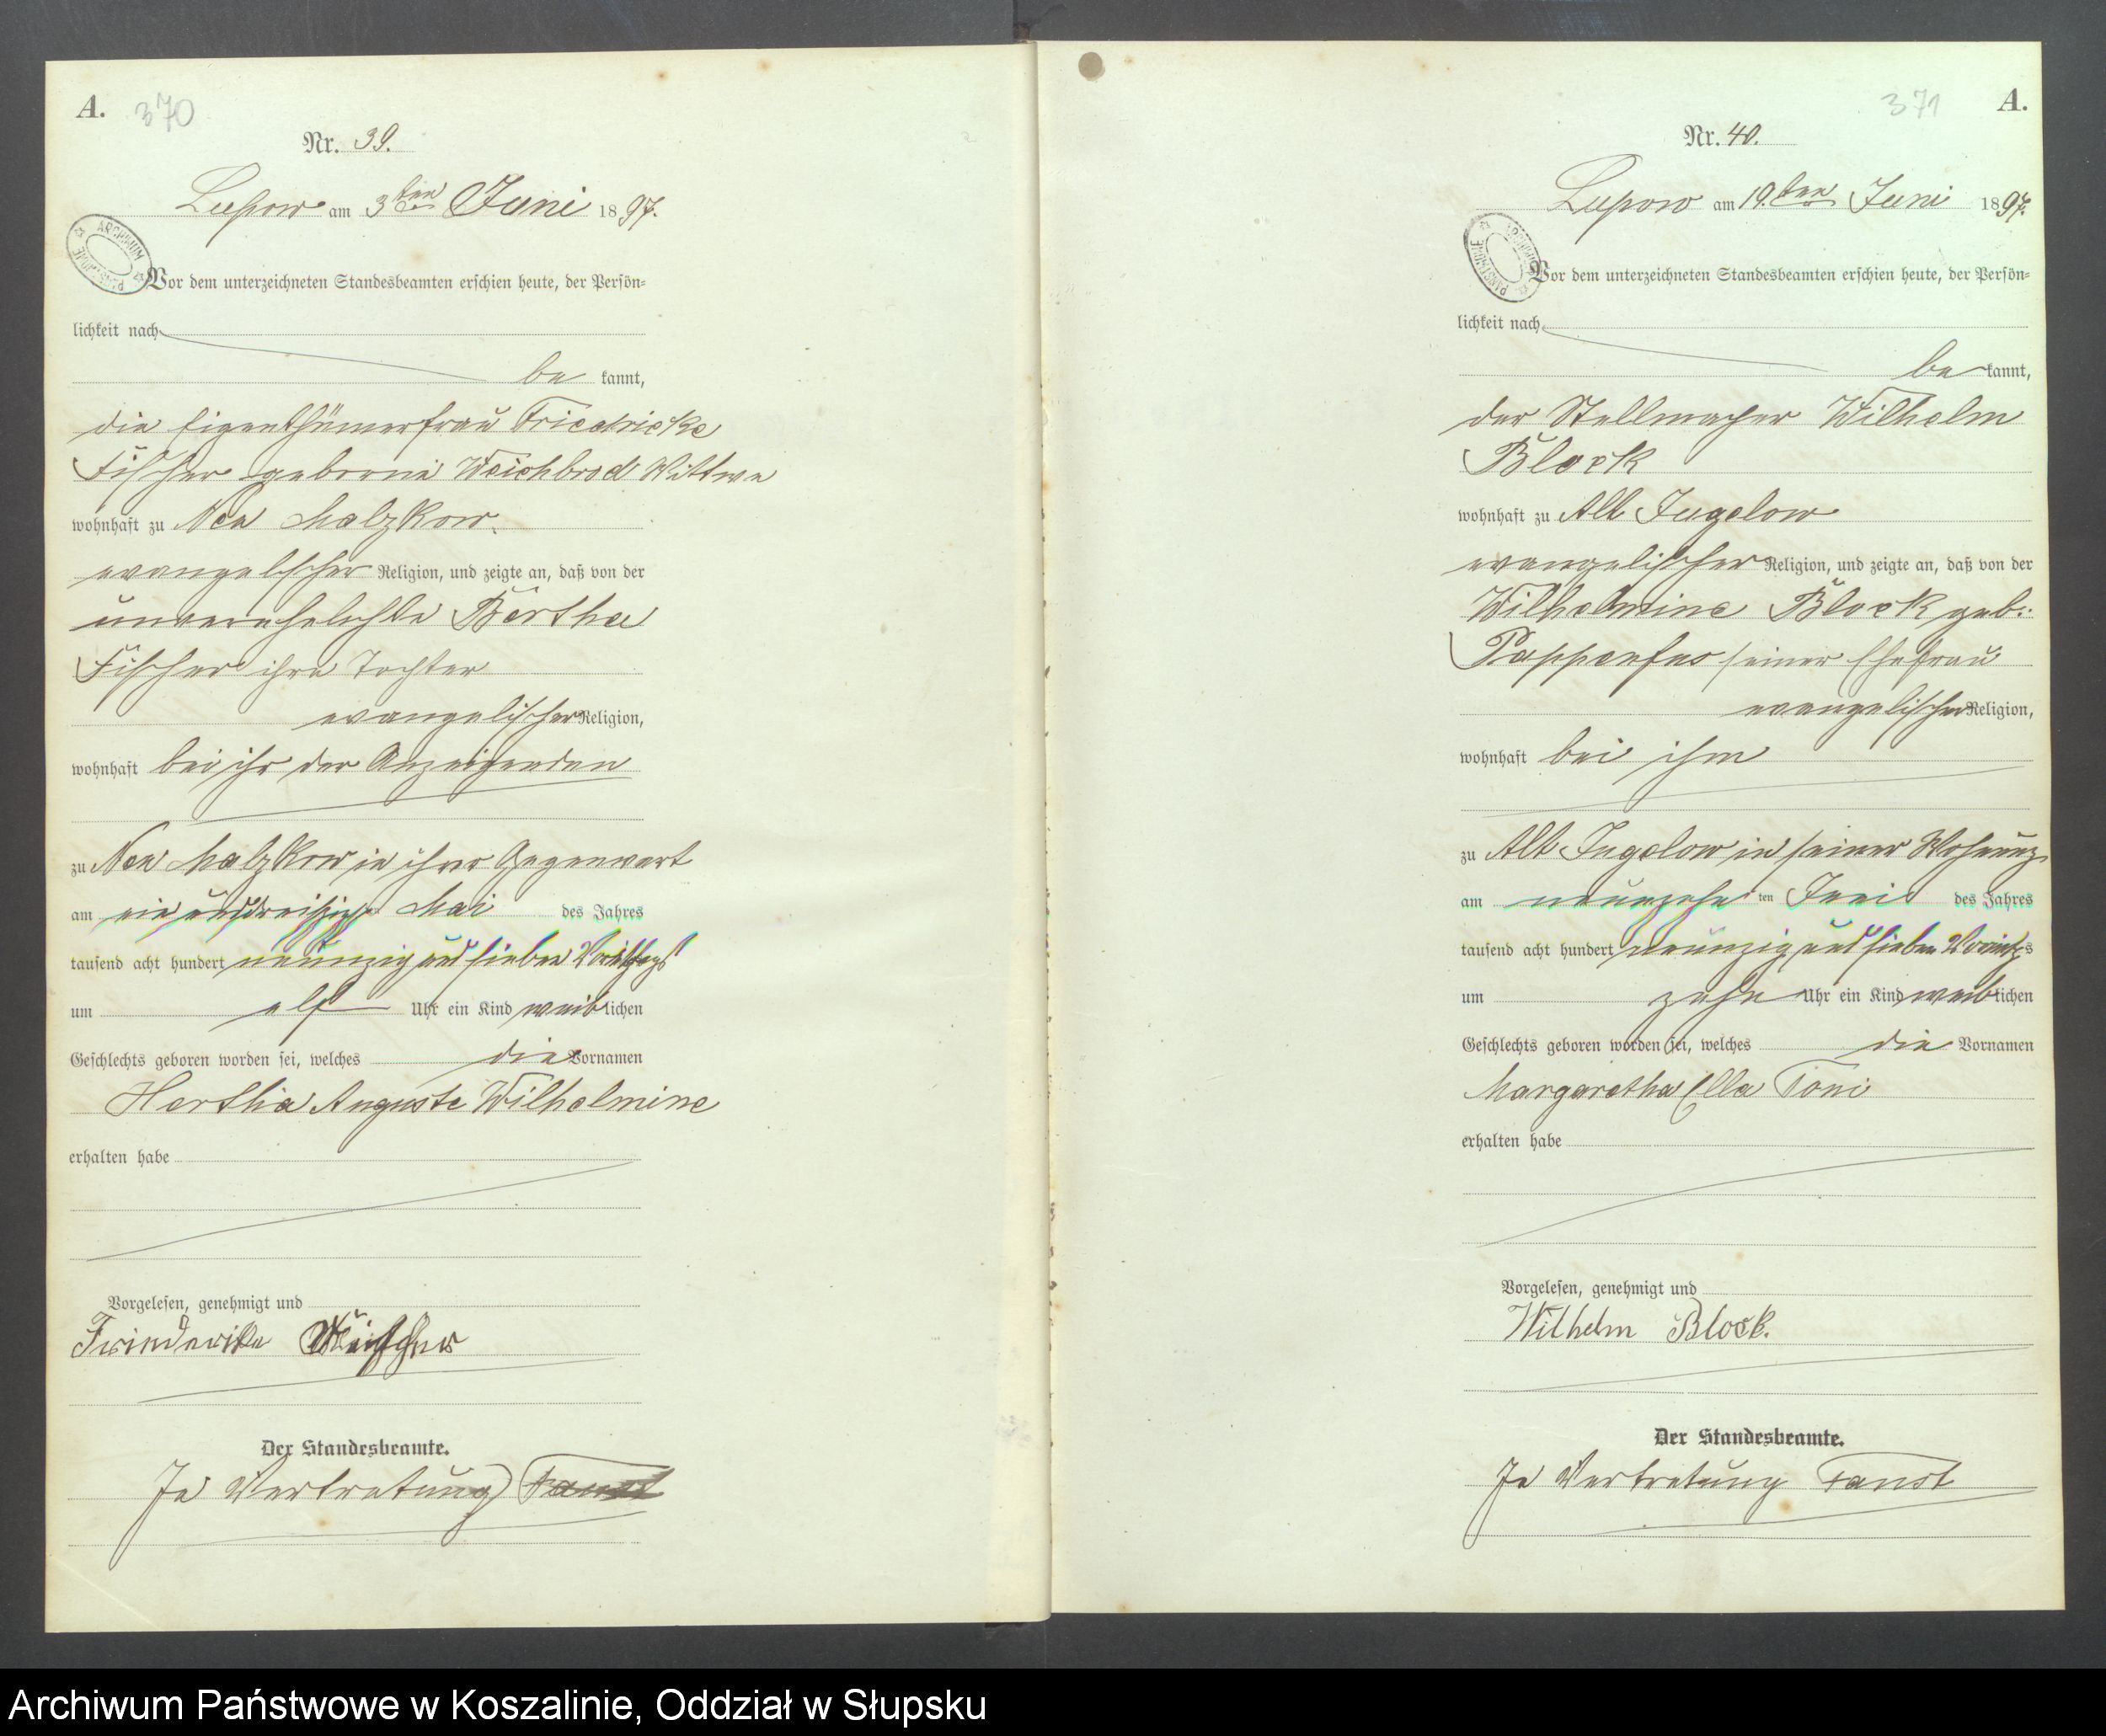 A. 370
Nr. 39.
Lupow am 3ten Juni 1897.
Vor dem unterzeichneten Standesbeamten erschien heute, der Persön=
lichkeit nach
be kannt,
die Eigenthümerfrau Friedricke
Fischer geborne Weichbrod Wittwe
wohnhaft zu Neu Malzkow
evangelischer Religion, und zeigte an, daß von der
unverehelichte Bertha
Fischer ihre Tochter
evangelischer Religion,
wohnhaft bei ihr der Anzeigenden
zu Neu Malzkow in ihrer Gegenwart
am ein und dreißigst Mai des Jahres
tausend acht hundert neunzig und sieben
um elf Uhr ein Kind weiblichen
Geschlechts geboren worden sei, welches die Vornamen
Hertha Auguste Wilhelmine
erhalten habe
Vorgelesen, genehmigt und
Friederike
Der Standesbeamte.
In Vertretung Faust
371 A.
Nr. 40.
Lupow am 19.ten Juni 1897.
Vor dem unterzeichneten Standesbeamten erschien heute, der Persön=
lichkeit nach
be kannt,
der Stellmacher Wilhelm
Block
wohnhaft zu Alt Jugelow
evangelischer Religion, und zeigte an, daß von der
Wilhelmine Block geb:
Pappenfus seiner Ehefrau
evangelischer Religion,
wohnhaft bei ihm
zu Alt Jugelow in seiner Wohnung
am neunzehn ten Juni des Jahres
tausend acht hundert neunzig und sieben Vormittgs
um zehn Uhr ein Kind weiblichen
Geschlechts geboren worden sei, welches die Vornamen
Margaretha Ella Toni
erhalten habe
Vorgelesen, genehmigt und
Wilhelm Block.
Der Standesbeamte.
In Vertretung Faust
Archiwum Państwowe w Koszalinie, Oddział w Słupsku